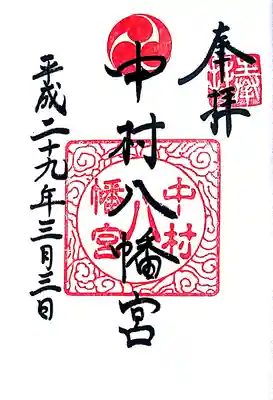 奉拝
中村八幡宮
平成二十九年三月三日
中村
八
幡宮